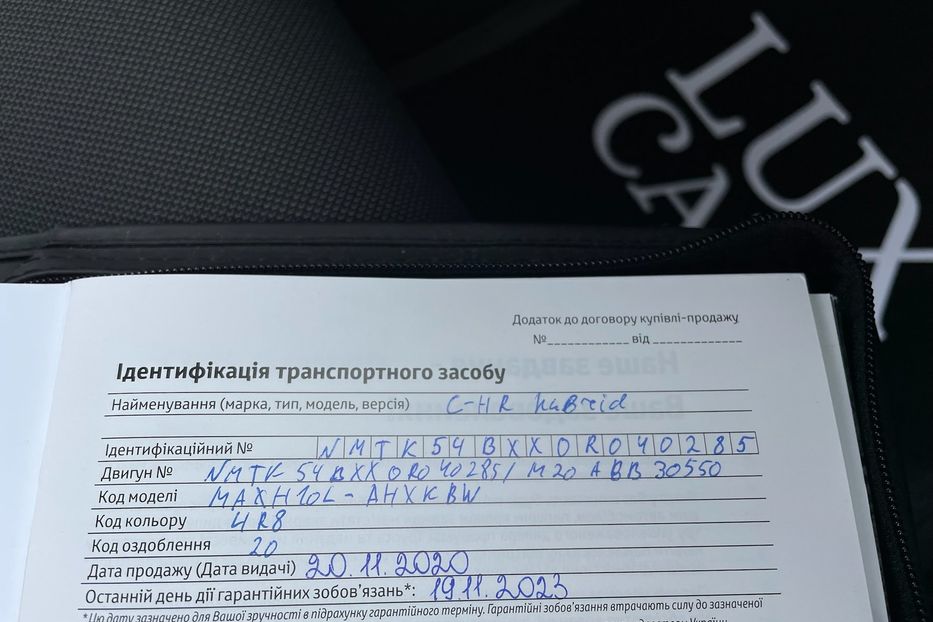 LUX
CA
Додаток до договору купівлі-продажу
№____________ від _____________
Ідентифікація транспортного засобу
Найменування (марка, тип, модель, версія) C-HR
Ідентифікаційний № NMTK54BXX0R040285
Двигун № NMTK54BXX0R040285/ M20ABB30550
Код моделі MAXH10L-AHXKBW
Код кольору 4R8
Код оздоблення 20
Дата продажу (Дата видачі) 20.11.2020
Останній день дії гарантійних зобов'язань*: 19.11.2023
*Цю дату зазначено для Вашої зручності в підрахунку гарантійного терміну. Гарантійні зобов'язання втрачають силу до зазначеної